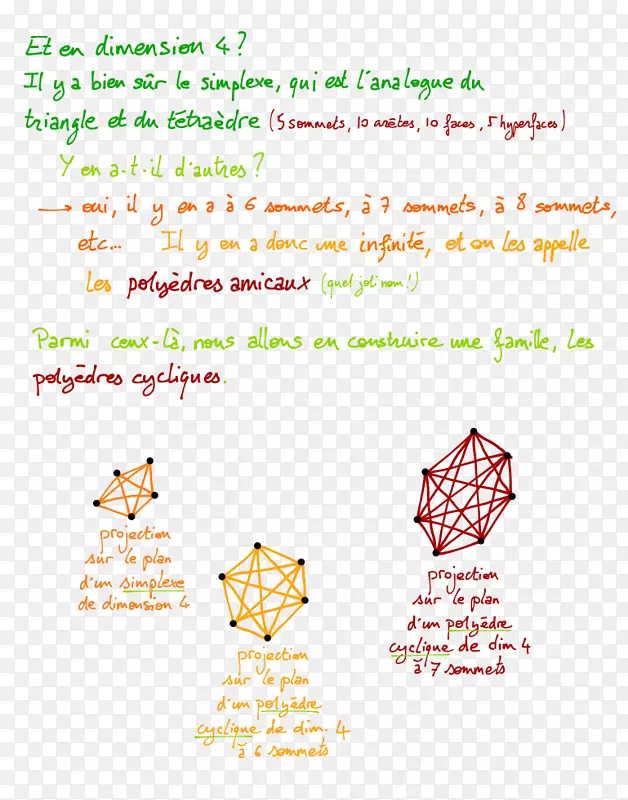 Et en dimension 4 ?
Il y a bien sûr le simplexe, qui est l'analogue du
triangle et du tétraèdre (5 sommets, 10 arêtes, 10 faces, 5 hyperfaces)
Y en a-t-il d'autres ?
→ oui, il y en a à 6 sommets, à 7 sommets, à 8 sommets,
etc... Il y en a donc une infinité, et on les appelle
les polyèdres amicaux (quel joli nom !)
Parmi ceux-là, nous allons en construire une famille, les
polyèdres cycliques.
projection
sur le plan
d'un simplexe
de dimension 4
projection
sur le plan
d'un polyèdre
cyclique de dim. 4
à 6 sommets
projection
sur le plan
d'un polyèdre
cyclique de dim 4
à 7 sommets